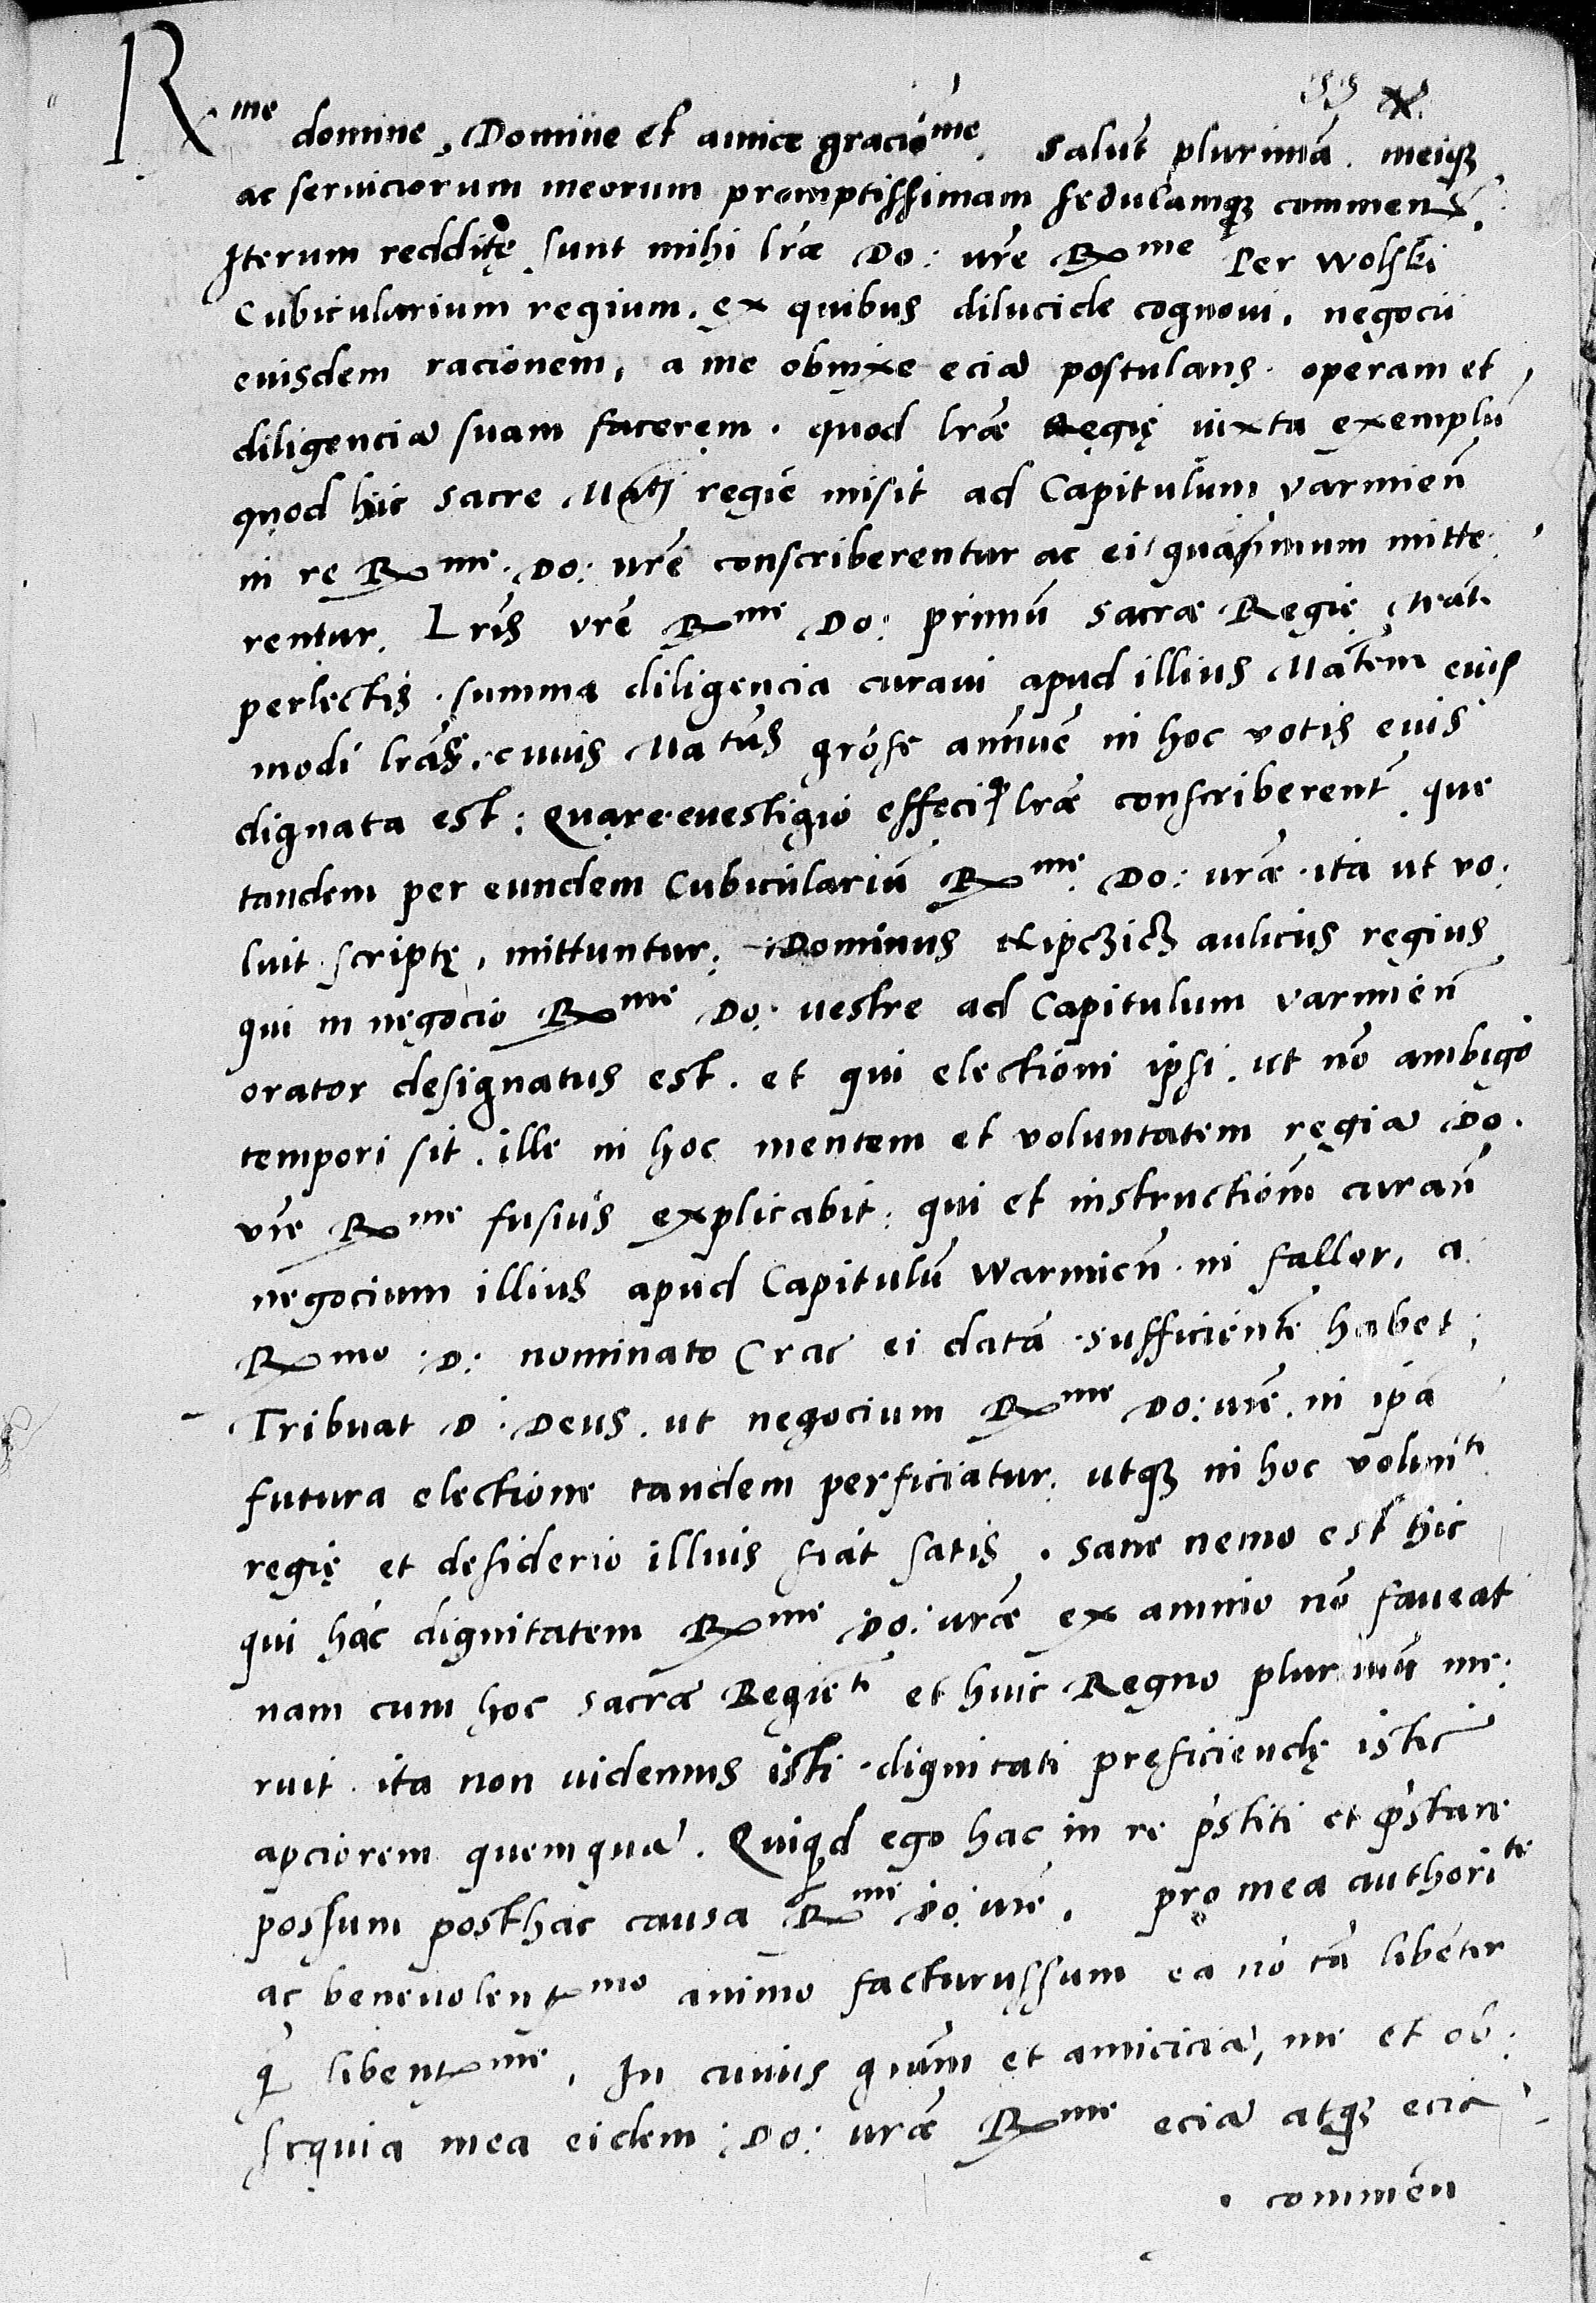 R<sup>me</sup> domine, Domine et amice gracio<sup>me</sup>. Salut̃ plurimã. meiq̨
ac seruiciorum meorum promptissimam sedulamq̨ commend̃.
Iterum redditę sunt mihi lr̃ae Do: vr̃e R<sup>me</sup> Per Wolski
Cubicularium regium. ex quibus dilucide cognoui, negocii
euisdem racionem, a me obnixe eciã postulans. operam et
diligenciã suam facerem. quod lr̃ae Regię iuxta exemplũ
quod huic Sacre Mat̃j regie misit ad Capitulum varmieñ
in re R<sup>me</sup>. Do: vr̃e conscriberentur ac ei quãprimum mitte
rentur. Lr̃is vr̃e R<sup>me</sup> Do: primũ Sacrae Regię Mat̃i
perlectis. summa diligencia curaui apud illius Mat̃em euis
modi lr̃as. cuius Mat̃us gr̃ose annuẽ in hoc votis euis
dignata est: Quare euestigio effeci q̃ lr̃ae conscriberent̃. que
tandem per eundem Cubiculariũ R<sup>me</sup>. Do: vr̃ae. ita ut vo.
luit scriptę, mittuntur. Dominus Nipczicz aulicus regius
qui in negocio R<sup>me</sup> Do: vestre ad Capitulum varmieñ
orator designatus est. et qui electioni ipsi. ut nõ ambigo
tempori sit. ille in hoc mentem et voluntatem regiã Do.
vr̃e R<sup>me</sup> fusius explicabit. qui et instructiõm curañ
negocium illius apud Capitulũ Warmieñ. ni fallor, a
R<sup>mo</sup>. D: nominato Crac̃ ei datã sufficientẽ habet.
Tribuat D. Deus. ut negocium R<sup>me</sup> Do: vr̃e. in ip̃a
futura electione tandem perficiatur. utq̨ in hoc volunt<sup>ti</sup>
regię et desiderio illius fiat satis. Sane nemo est hic
qui hãc dignitatem R<sup>me</sup> Do: vr̃ae ex animo nõ faueat
nam cum hoc Sacrae Regie<sup>ti</sup> et huic Regno plurimũ me.
ruit. ita non videmus isti. dignitati pręficiendę istic
apciorem quemquã. Quiq̃d ego hac in re p̃stiti et p̃stare
possum posthac causa R<sup>me</sup> Do: vr̃e. pro mea authori<sup>te</sup>
ac beneuolent<sup>mo</sup> animo facturussum ea nõ tã libenter
q̃ libent<sup>me</sup>. In cuius gr̃am et amiciciã, me et ob.
sequia mea eidem Do: vr̃ae R<sup>me</sup> eciã atq̨ eciã
commeñ